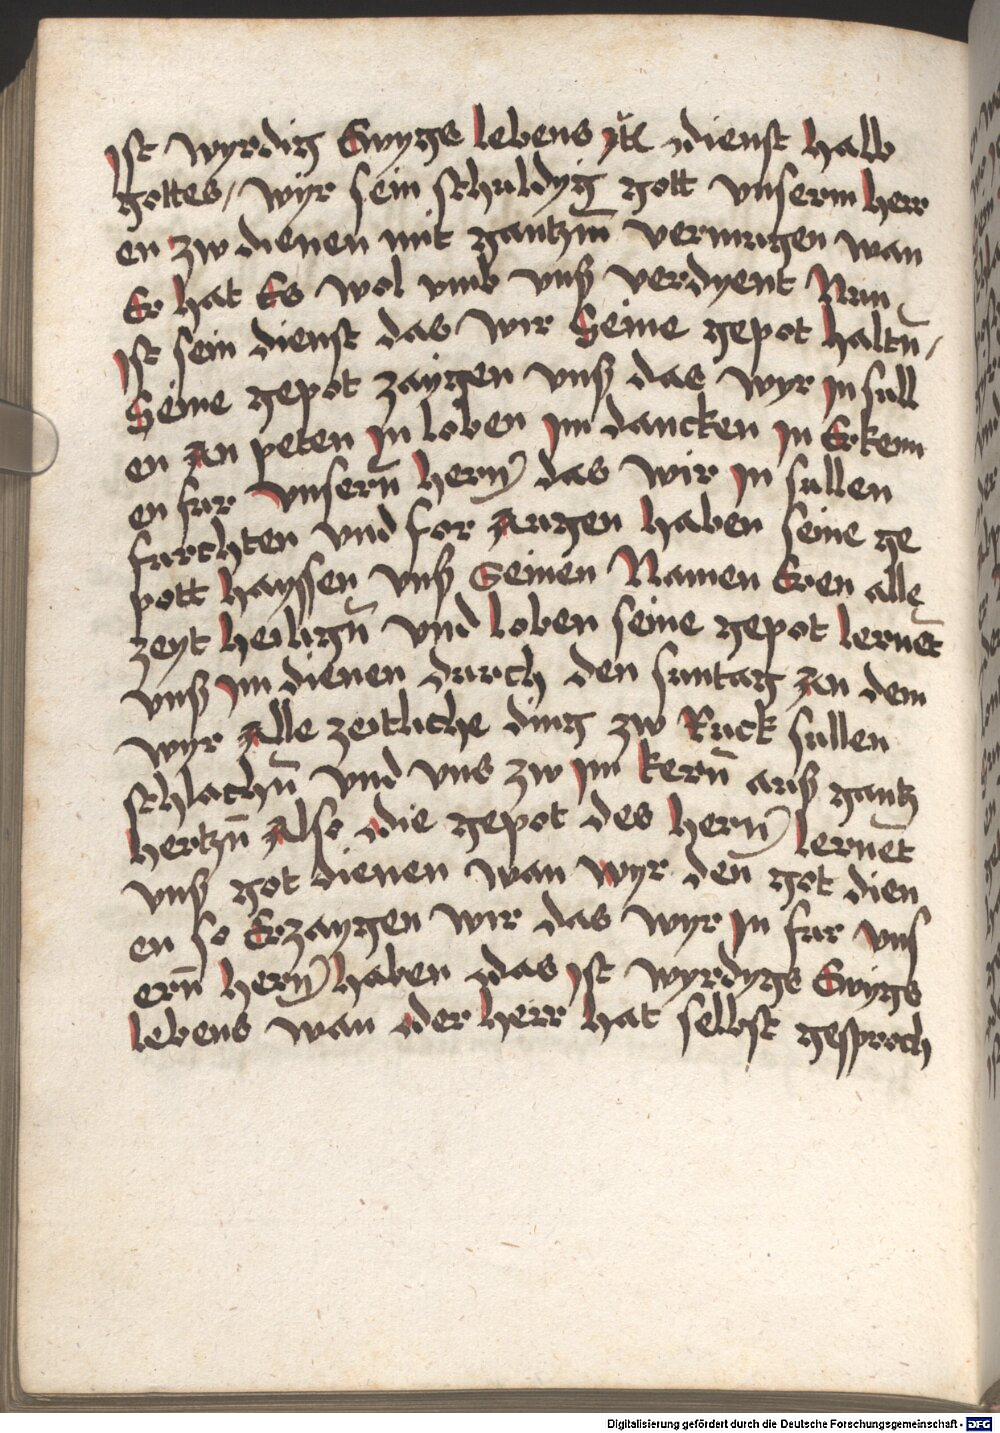 Ist wyrdig Ewygs lebens dienst halb
gottes / wyr sein schuldyg gott vnserm herr
en zw dienen mit gantzm̄ vermugen wan
Er hat Es wol vmb vnß verdyent Nun
Ist sein dienst das wir Seine gepot haltn̄ /
Seine gepot zaygen vnß das wyr in sull
en An peten In loben Im dancken In Erkenn
en fur vnsern̄ hern das wir In sullen
furchten vnd for Augen haben seine ge
pott hayssen vnß Seinen Namen Eren alle
zeyt heilign̄ vnd loben seine gepot lernet
vnß Im dienen durch den suntag An dem
wyr Alle zeitliche ding zw Ruck sullen
schlachn̄ vnd vns zw im kern̄ auß gantz
hertzn̄ Also die gepot des hern lernet
vnß got dienen wan wyr den̄ got dien
en so Erzaygen wir das wyr In fur vns
ern̄ hern haben das Ist wyrdygs Ewigs
lebens wan der herr hat selbst gesproch
Digitalisierung gefördert durch die Deutsche Forschungsgemeinschaft - DFG